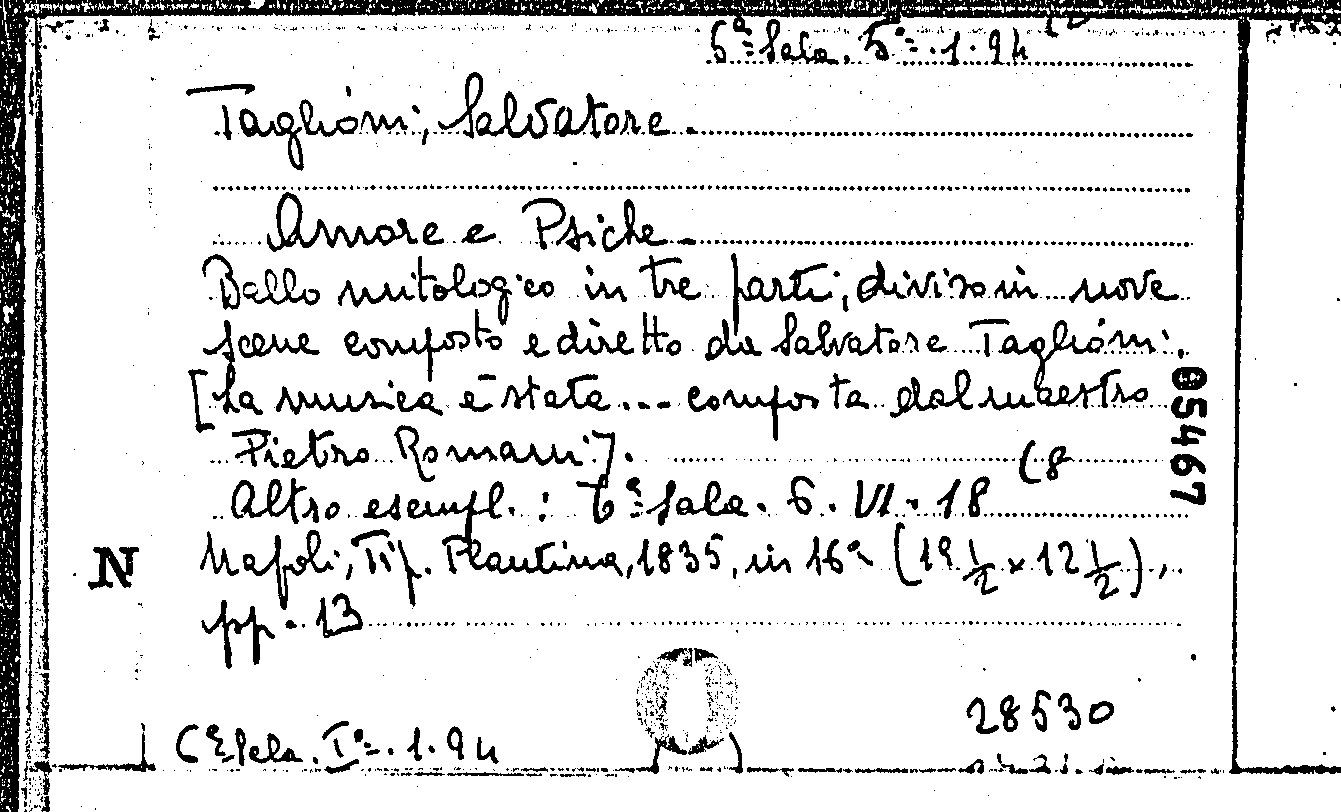 5ª Sala. 5ª. 1. 94
Taglioni, Salvatore.
Amore e Psiche.
Ballo mitologico in tre parti, diviso in nove
scene composto e diretto da Salvatore Taglioni.
[La musica è stata... composta dal maestro
Pietro Romani].
(8
Altro esempl.: 6ª Sala. 6. VI. 18
Napoli, Tip. Flautina, 1835, in 16º (19 1/2 x 12 1/2),
pp. 13
N
05467
28530
6ª Sala. Iª. 1. 94